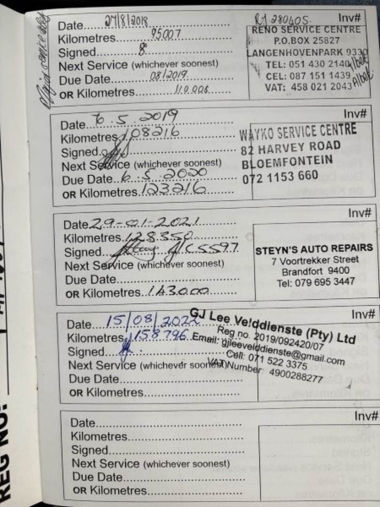 Inv#
Date 27/8/2018
Kilometres 95007
Signed
Next Service (whichever soonest)
Due Date 08/2019
OR Kilometres 110 006
RENO SERVICE CENTRE
P.O.BOX 25827
LANGENHOVENPARK 9330
TEL: 051 430 2140
CEL: 087 151 1439
VAT: 458 021 2043
Inv#
Date 6.5.2019
Kilometres 108216
Signed
Next Service (whichever soonest)
Due Date 6.5.2020
OR Kilometres 123216
WAYKO SERVICE CENTRE
82 HARVEY ROAD
BLOEMFONTEIN
072 1153 660
Inv#
Date 29-01-2021
Kilometres 128350
Signed
Next Service (whichever soonest)
Due Date
OR Kilometres 143000
STEYN'S AUTO REPAIRS
7 Voortrekker Street
Brandfort 9400
Tel: 079 695 3447
Inv#
Date 15/08/2022
Kilometres 158796
Signed
Next Service (whichever soonest)
Due Date
OR Kilometres
GJ Lee Velddienste (Pty) Ltd
Reg no. 2019/092420/07
Email: gjleevelddienste@gmail.com
Cell: 071 522 3375
VAT Number 4900288277
Inv#
Date
Kilometres
Signed
Next Service (whichever soonest)
Due Date
OR Kilometres
REG NO: